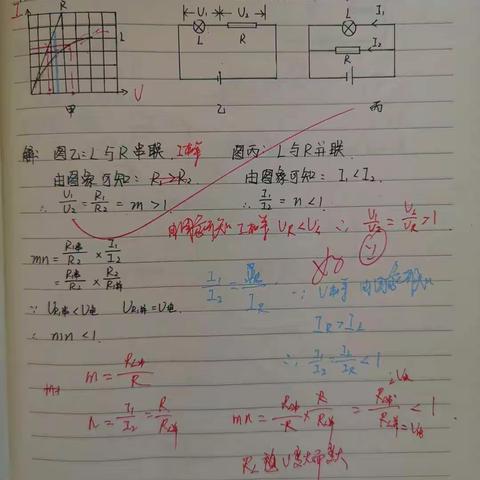 I
R
L
V
甲
U₁ U₂
L R
乙
L I₁
R I₂
丙
解: 图乙: L与R串联. I相等 图丙: L与R并联.
由图象可知: R₁>R₂ 由图象可知: I₁<I₂.
∴ U₁/U₂ = R₁/R₂ = m >1. ∴ I₁/I₂ = n <1.
I相等 U_R<U_L ∴ U₁/U₂ = U_L/U_R >1
mn = R₁串/R₂ × I₁/I₂
= R₁串/R₂ × R₂/R₁并
I₁/I₂ = I_R
∵ U相等
∵ U_R串<U电 U_R并=U电.
I_R>I_L
∴ mn <1.
∴ I₁/I₂ = I_L/I_R <1
m = R_L串/R
n = I₁/I₂ = R/R_L并
mn = R_L串/R × R/R_L并 = R_L串/R_L并 <1
R_L随U变大而变大